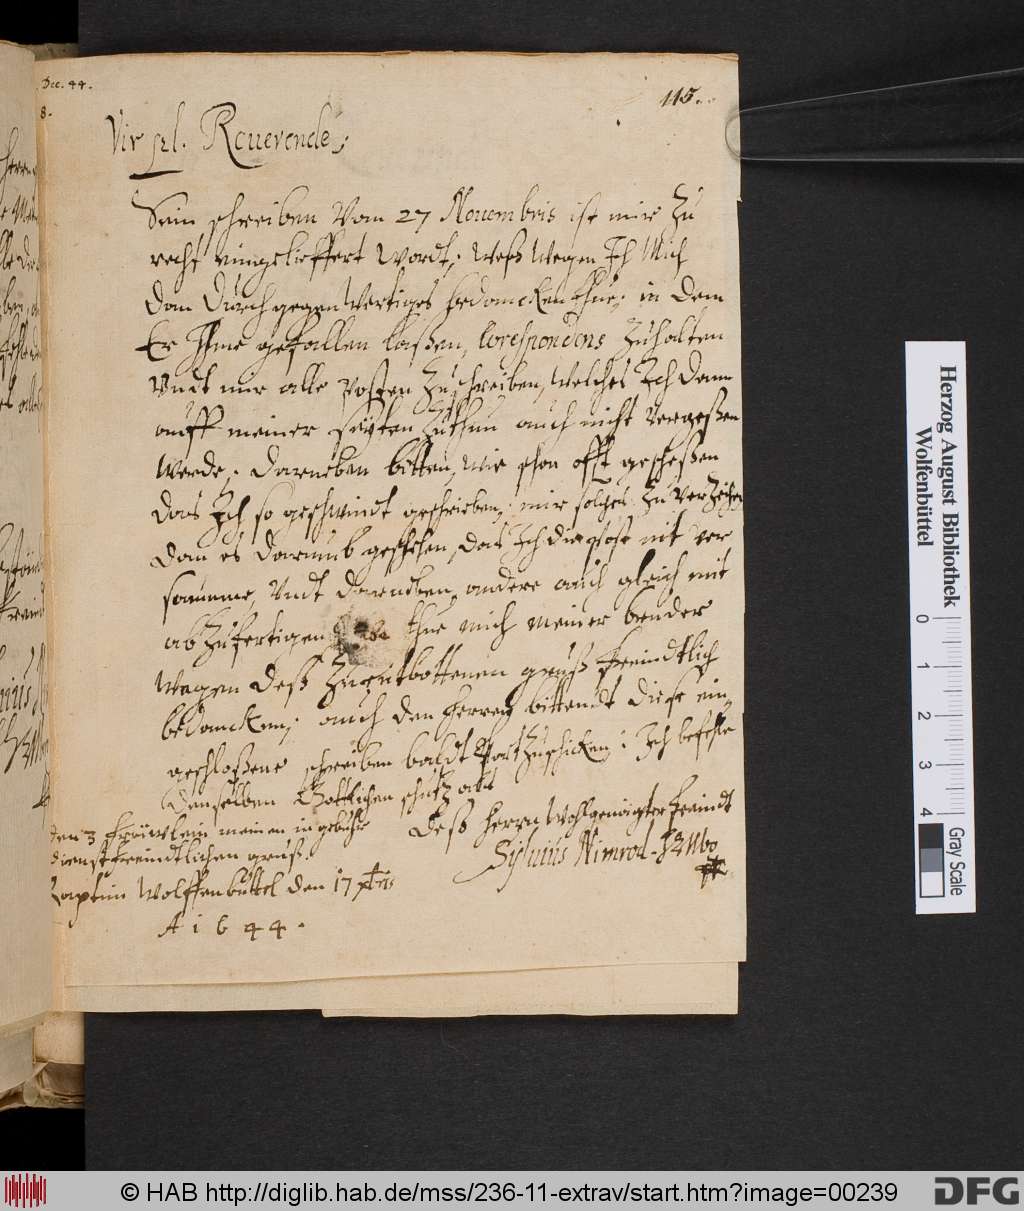 Dec. 44.
8.
115.
Vir pl. Reuerende;
Sein schreiben Vom 27 Nouembris ist mir Zu
recht eingelieffert wordt; Weß wegen Ich Mich
dan durch gegenwertiges bedancken thue; in dem
Er Ihme gefallen laßen, Corespondens Zuhalten
Vndt mir alle Posten Zuschreiben, welches Ich dann
auff meiner seyten Zuthun auch nicht Vergeßen
werde; darneben bitten, wie schon offt geschehen
das Ich so geschwindt geschrieben, mir solches Zu Verzeihen
dan es darumb geschehen, das Ich die post nit Ver
saumme, Vndt darneben andere auch gleich mit
abZufertigen thue mich meiner beyder
wegen deß Zuentbottenen gruß freindtlich
bedancken; auch den herren bittendt diese ein
geschloßene schreiben baldt fort Zuschicken; Ich befehle
denselben Gottlichen schutz
deß herrn Wohlgeneigter freindt
Sylvius Nimrod HZWbo
den 3 freuwlein meinen in gebuhr
dienstfreindtlichen gruß.
Raptim Wolffenbuttel den 17 xbris
A 1644.
Herzog August Bibliothek
Wolfenbüttel
0 1 2 3 4
Gray Scale
© HAB http://diglib.hab.de/mss/236-11-extrav/start.htm?image=00239
DFG